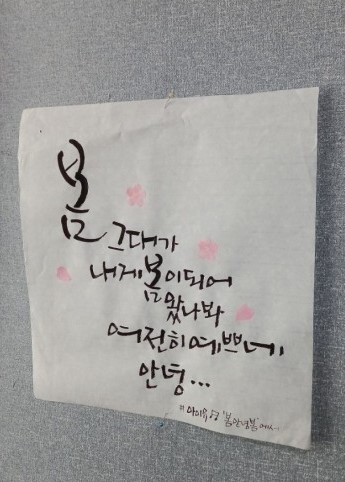 봄
그대가
내게 봄이 되어
왔나봐
여전히 예쁘네
안녕...
아이유 '봄 안녕 봄' 에서..